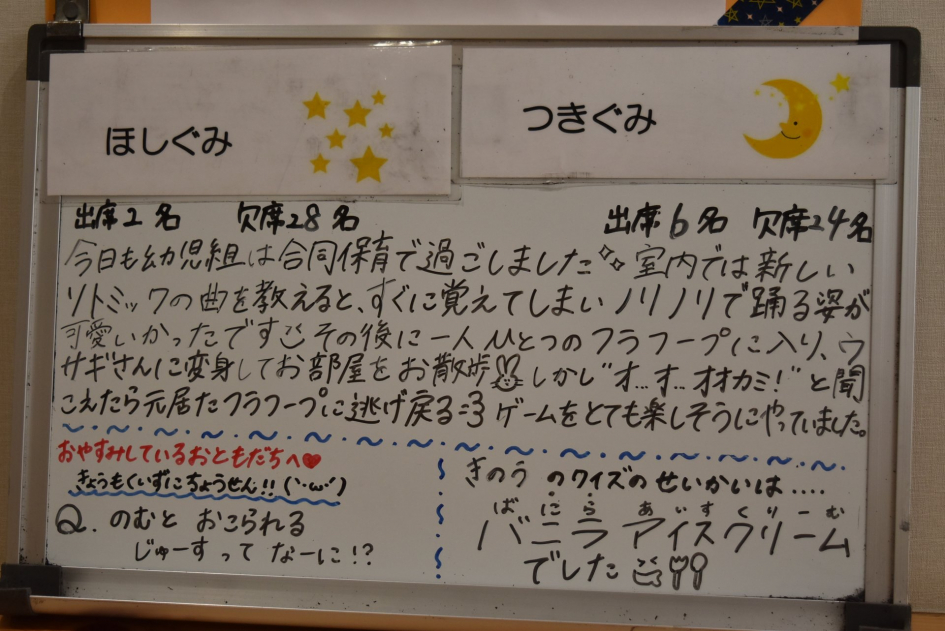 ほしぐみ
つきぐみ
出席2名 欠席28名
出席6名 欠席24名
今日も幼児組は合同保育で過ごしました 室内では新しい
リトミックの曲を教えると、すぐに覚えてしまいノリノリで踊る姿が
可愛いかったです その後に一人ひとつのフラフープに入り、ウ
サギさんに変身してお部屋をお散歩 しかし"オ…オ…オオカミ!"と聞
こえたら元居たフラフープに逃げ戻る=3 ゲームをとても楽しそうにやっていました。
おやすみしているおともだちへ♥
きょうもくいずにちょうせん!!(`・ω・´)
Q. のむと おこられる
じゅーすって なーに!?
きのう のクイズのせいかいは....
ばにら あいすくりーむ
バニラ アイスクリーム
でした